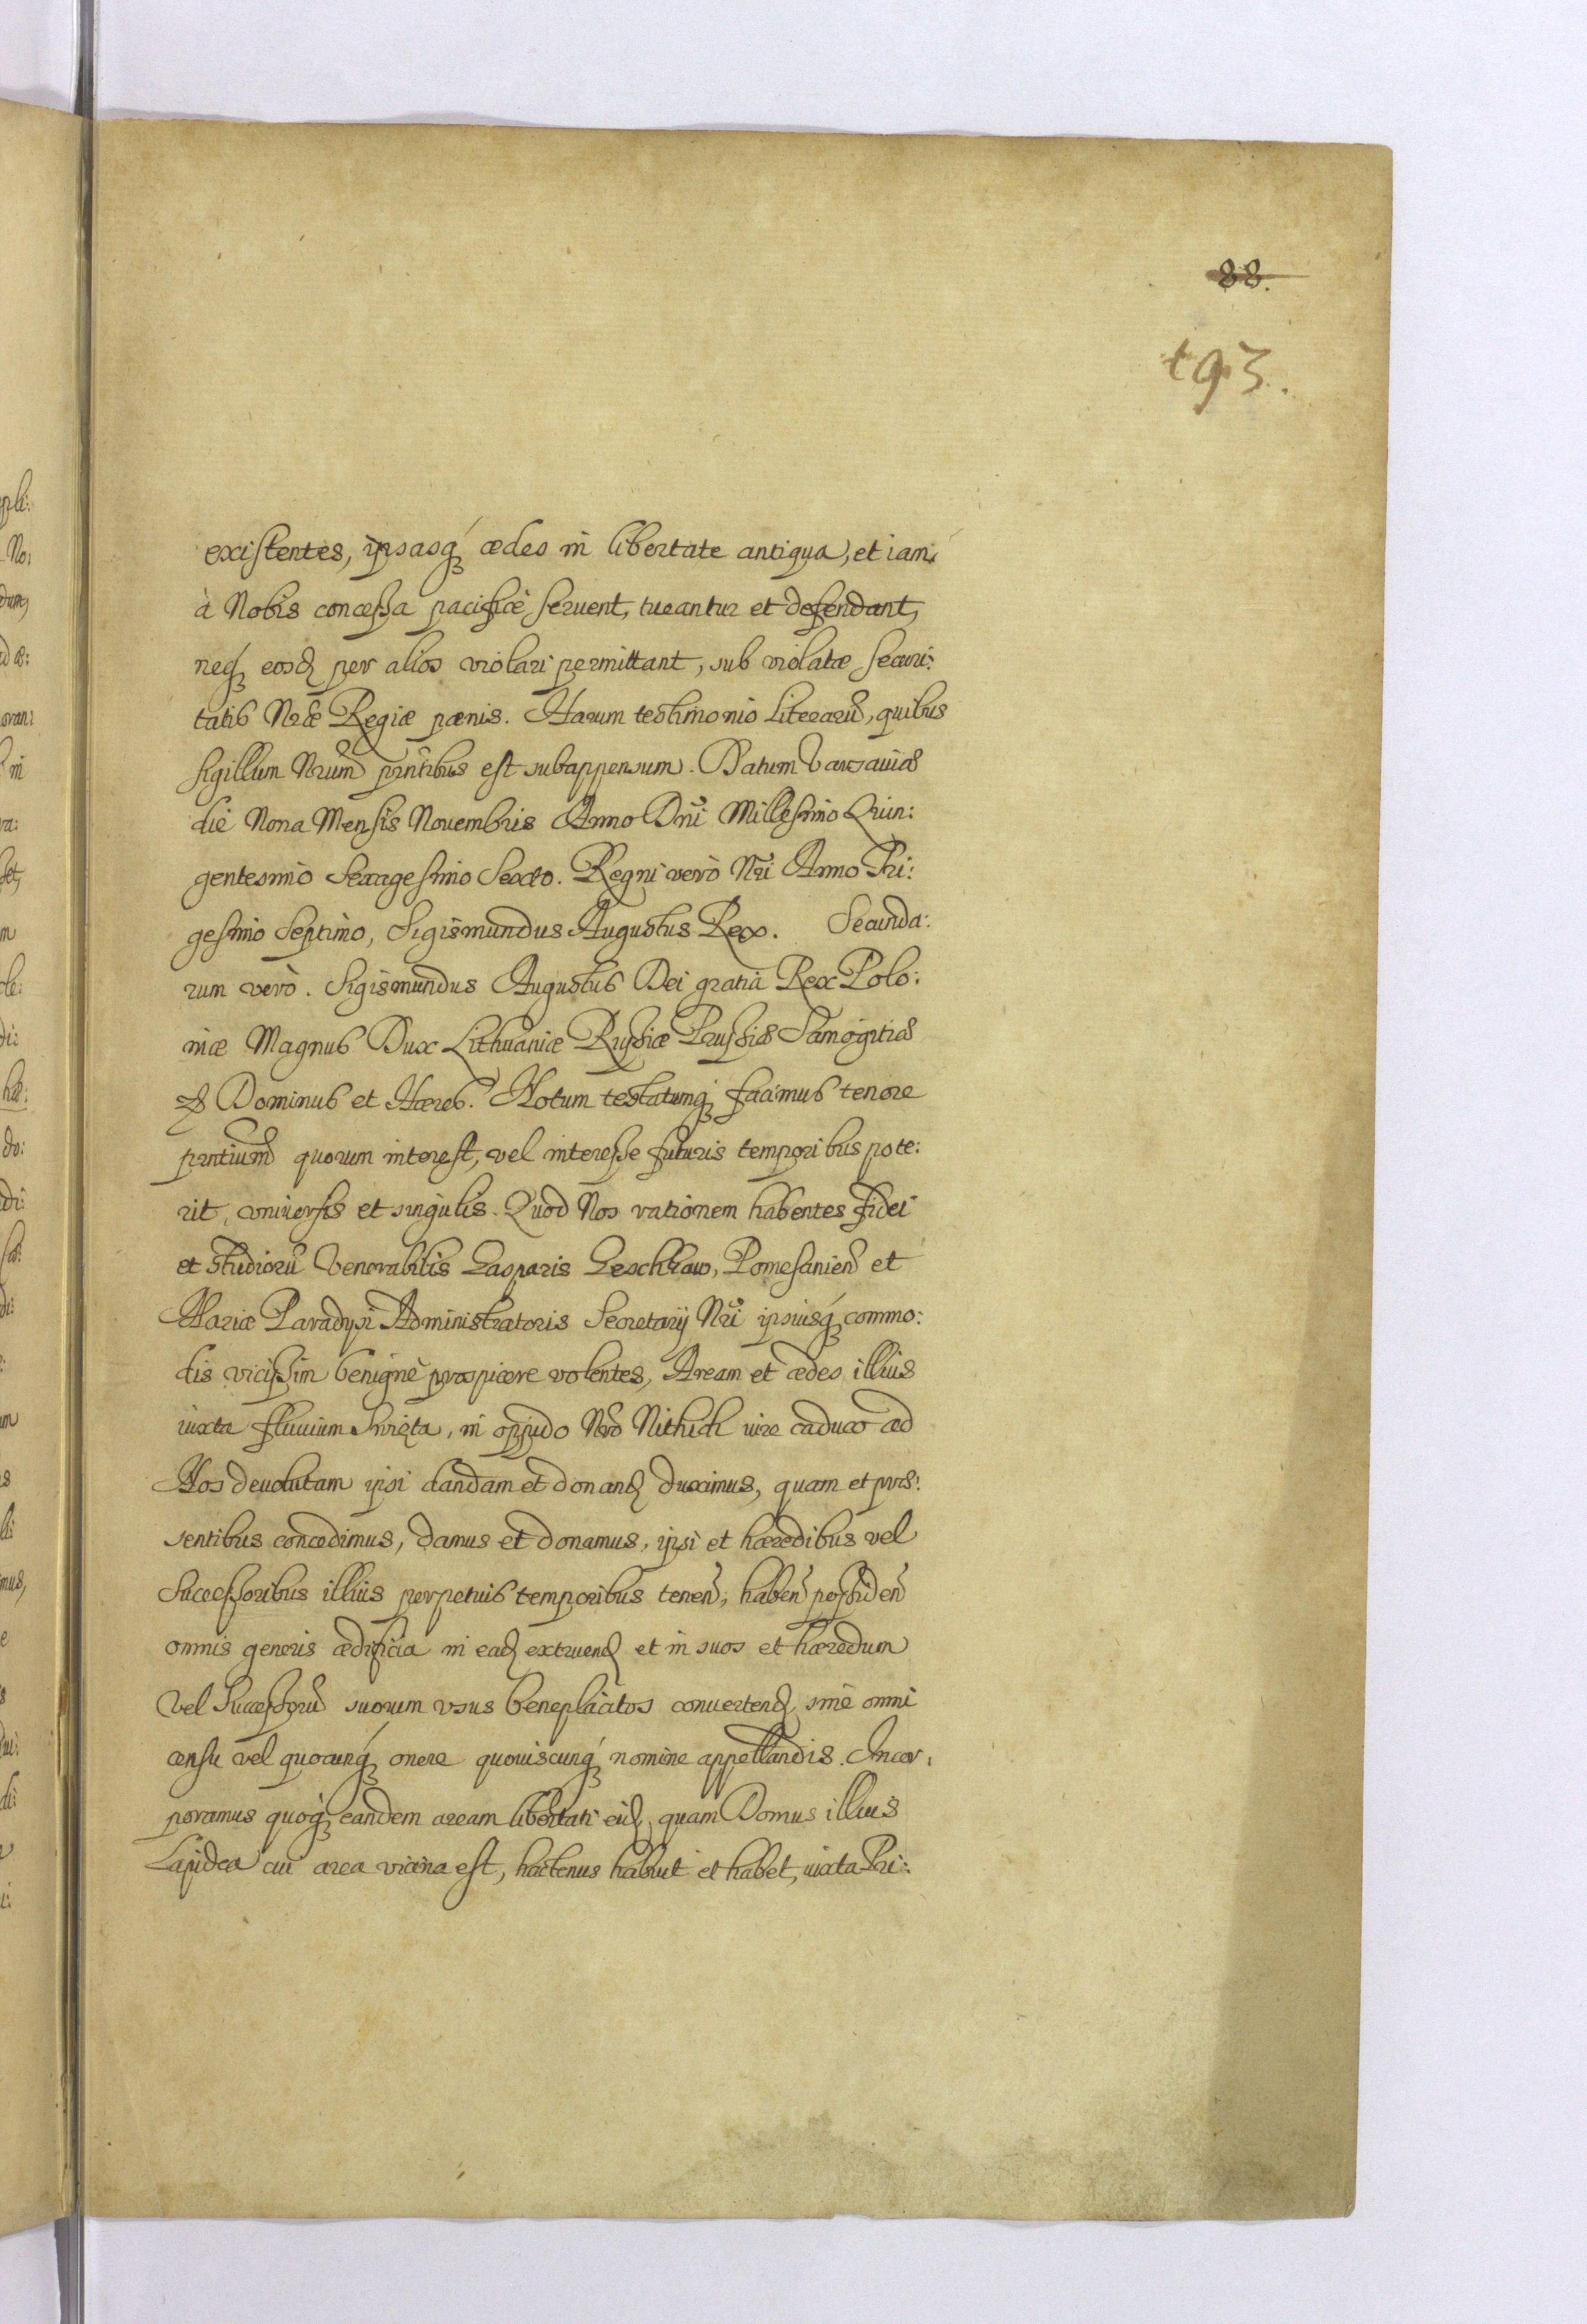 88.
t93.
existentes, ipsasq́ȝ ædes in libertate antiqua, et iam
à Nobis concessa pacificè seruent, tueantur et defendant,
neqȝ eosd per alios violari permittant, sub violatæ securi:
tatis Nræ Regiæ pænis. Harum testimonio Literarū, quibus
sigillum Nrum pñtibus est subappensum. Datum Varsauiæ
die Nona Mensis Nouembris Anno Dñi Millesimo Quin:
gentesimo Sexagesimo Sexto. Regni verò Nri Anno Tri:
gesimo Septimo, Sigismundus Augustus Rex. Secunda:
rum verò. Sigismundus Augustus Dei gratia Rex Polo:
niæ Magnus Dux Lithuaniæ Russiæ Prussiæ Samogitiæ
Dominus et Hæres. Notum testatumqȝ facimus tenore
prntium quorum interest, vel interesse futuris temporibus pote:
rit, vniuersis et singulis. Quod Nos rationem habentes fidei
et Studiorū Venerabilis Gasparis Geschkaw, Pomesanien et
Mariæ Paradysi Administratoris Secretarij Nri ipsiusq́ȝ commo:
dis vicissim benignè prospicere volentes, Aream et ædes illius
iuxta fluuium Swięta, in oppido Nro Nithich iure caduco ad
Nos deuolutam ipsi dandam et donand duximus, quam et præ:
sentibus concedimus, damus et donamus, ipsi et hæredibus vel
Successoribus illius perpetuis temporibus tenen, haben possiden
omnis generis ædificia in ead extruend et in suos et hæredum
vel Successorū suorum vsus beneplacitos conuertend, sine omni
censu vel quocunq́ȝ onere quouiscunq́ȝ nomine appellandis. Incor:
poramus quoqȝ eandem aream libertati eid, quam Domus illius
Lapidea cui area vicina est, hactenus habuit et habet, iuxta Pri: